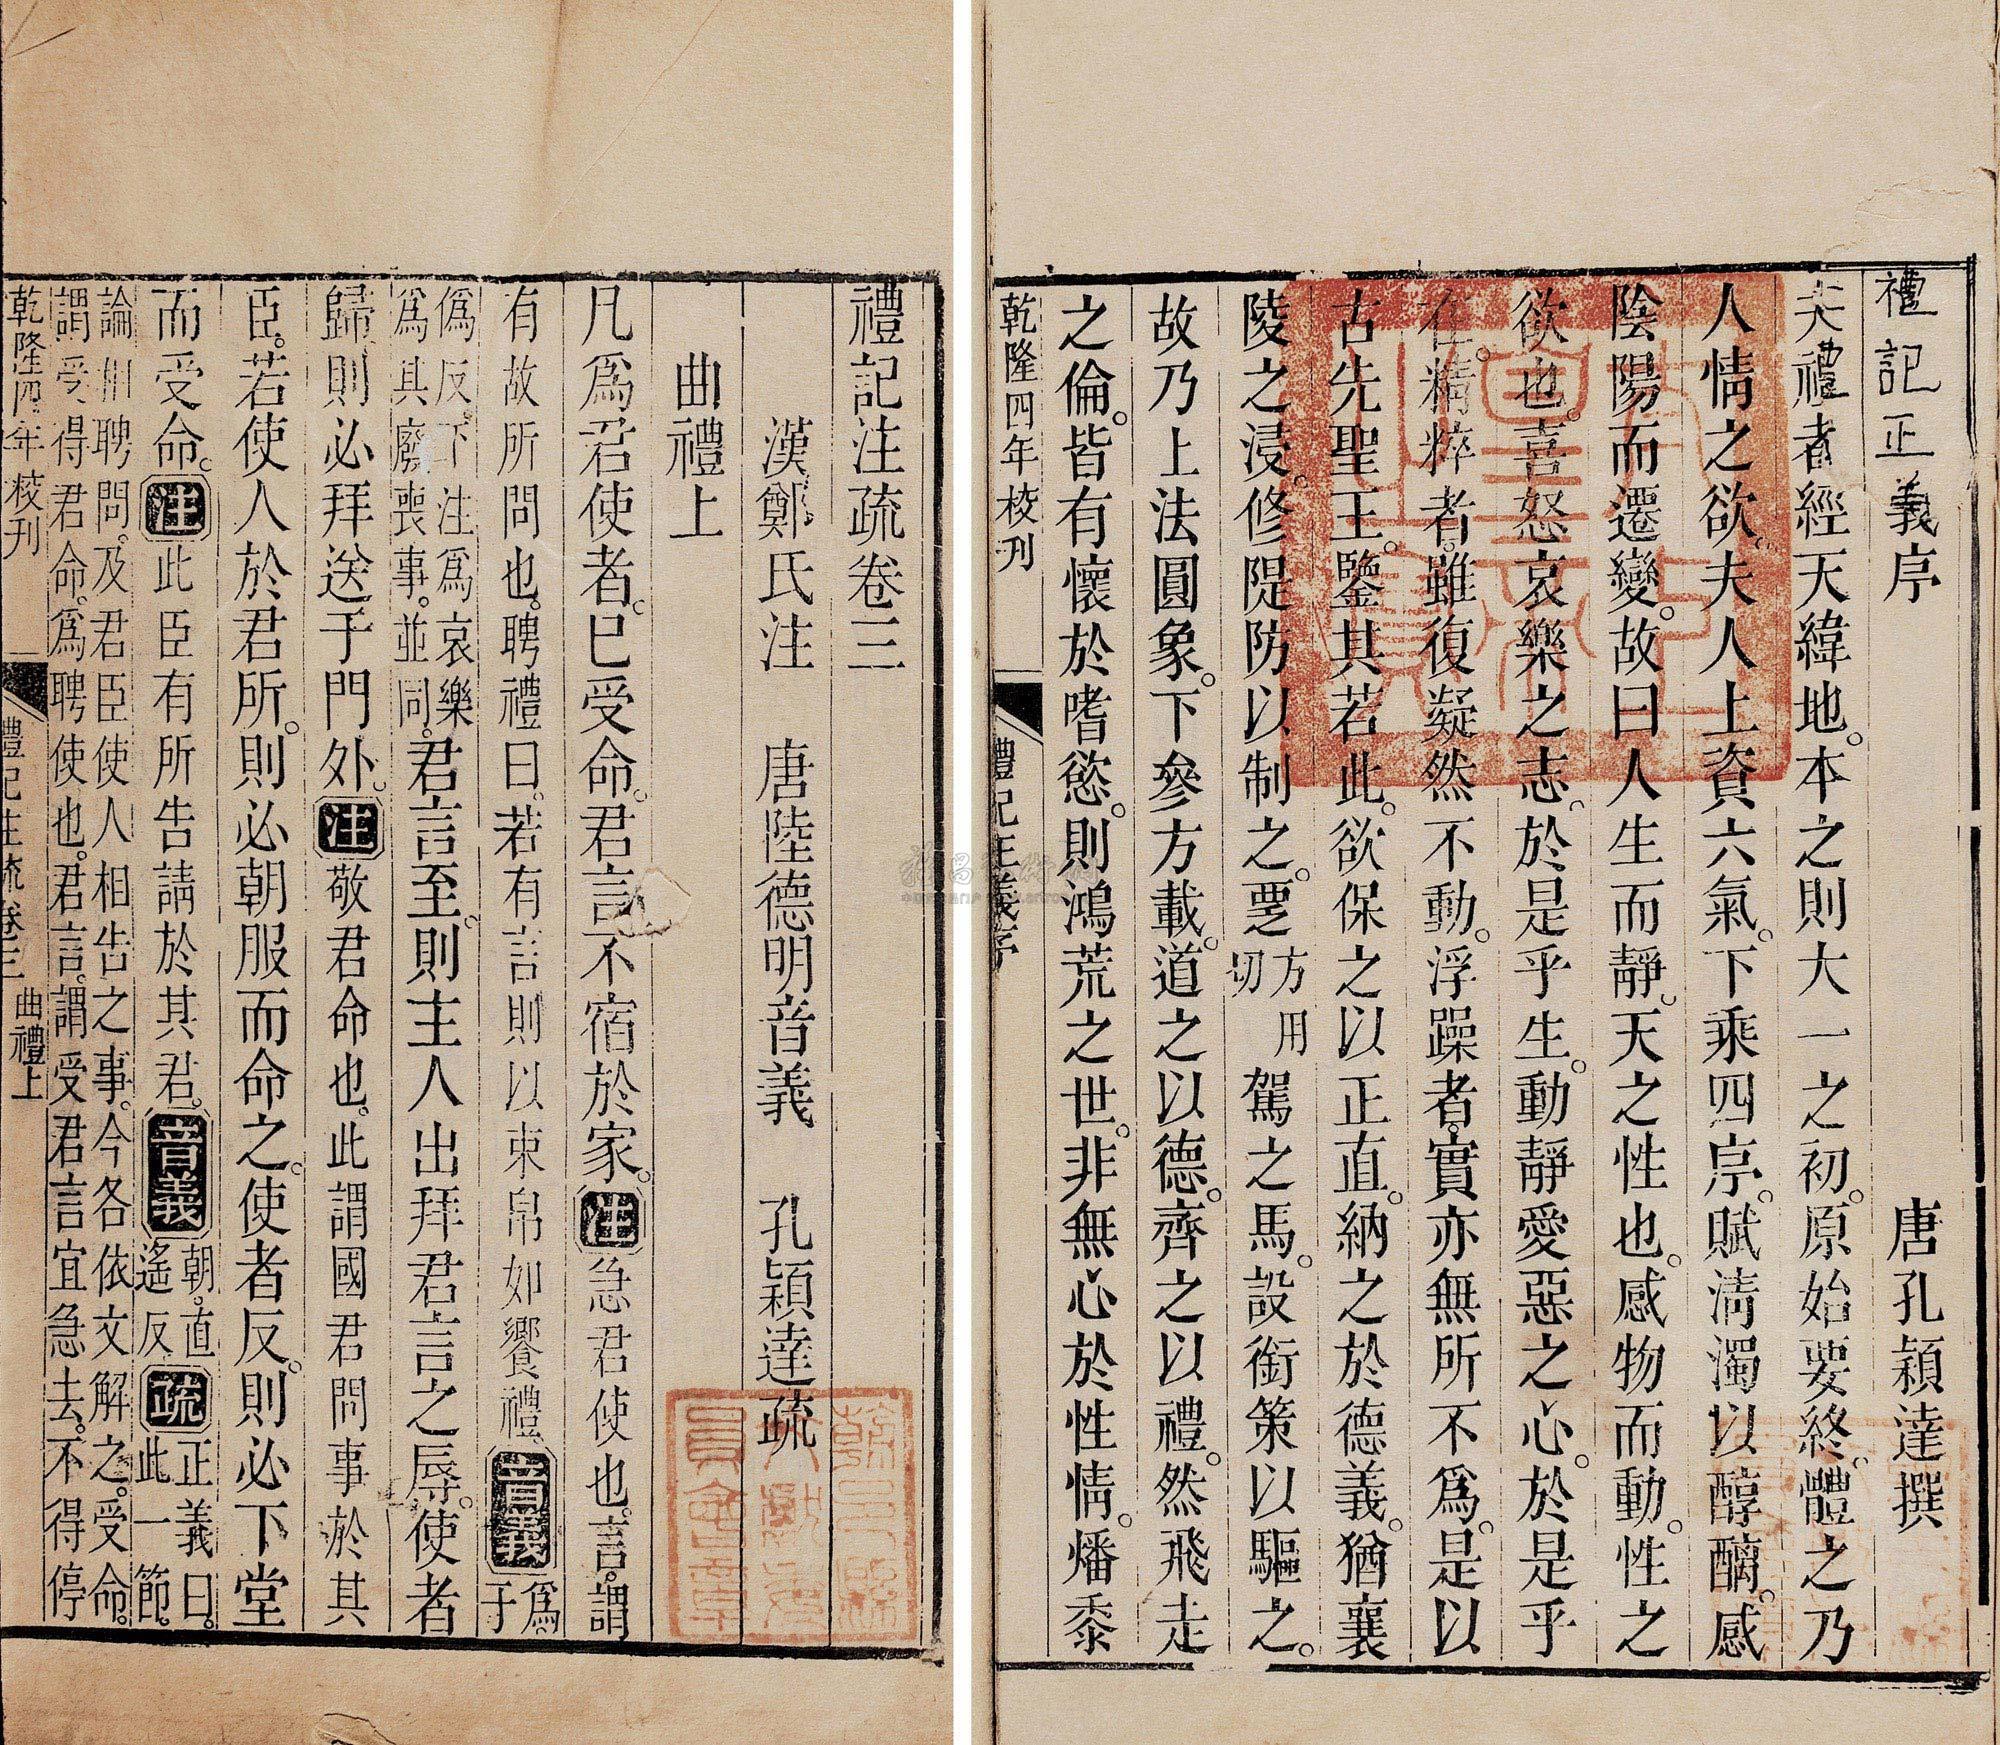 禮記正義序
唐孔穎達撰
夫禮者經天緯地。本之則大一之初。原始要終。體之乃
人情之欲。夫人上資六氣。下乘四序。賦淸濁以醇醨。感
陰陽而遷變。故曰人生而靜。天之性也。感物而動。性之
欲也。喜怒哀樂之志。於是乎生。動靜愛惡之心。於是乎
在。精粹者。雖復凝然不動。浮躁者。實亦無所不爲。是以
古先聖王。鑒其若此。欲保之以正直。納之於德義。猶襄
陵之浸。修隄防以制之。覂方用切駕之馬。設銜策以驅之。
故乃上法圓象。下參方載。道之以德。齊之以禮。然飛走
之倫。皆有懷於嗜慾。則鴻荒之世。非無心於性情。燔黍
乾隆四年校刊
禮記正義序
禮記注疏卷三
漢鄭氏注 唐陸德明音義 孔穎達疏
曲禮上
凡爲君使者。已受命。君言不宿於家。注急君使也。言。謂
有故所問也。聘禮曰。若有言則以束帛如饗禮。音義爲于
僞反。下注爲哀樂爲其廢喪事。並同。君言至。則主人出拜君言之辱。使者
歸則必拜送于門外。注敬君命也。此謂國君問事於其
臣。若使人於君所。則必朝服而命之。使者反。則必下堂
而受命。注此臣有所告請於其君。音義朝。直遙反疏正義曰。此一節。
論出聘問。及君臣使人相告之事。今各依文解之。受命。
謂受得君命。爲聘使也。君言。謂受君言宜急去。不得停
乾隆四年校刊
禮記注疏卷三 曲禮上